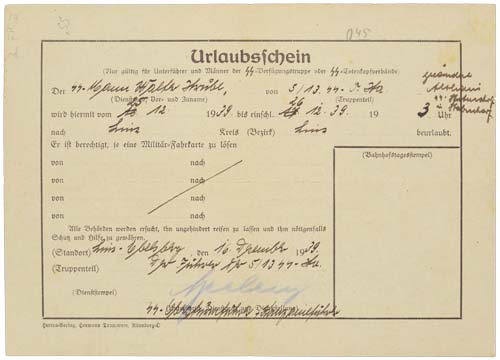 045
Urlaubsschein
(Nur gültig für Unterführer und Männer der SS-Verfügungstruppe oder SS-Totenkopfverbände)
Der SS-Mann Walter Strübe, von 5/13 SS-T. Sta
(Dienstgrad, Vor- und Zuname) (Truppenteil)
wird hiermit vom 12 1939 bis einschl. 12. 39. 19 3 Uhr
nach Linz Kreis (Bezirk) Linz beurlaubt.
Er ist berechtigt, je eine Militär-Fahrkarte zu lösen (Bahnhofstagesstempel)
von nach
von nach
von nach
von nach
Alle Behörden werden ersucht, ihn ungehindert reisen zu lassen und ihm nötigenfalls
Schutz und Hilfe zu gewähren.
(Standort) Linz-Ebelsberg, den 16. Dezember 1939.
(Truppenteil) Der Führer der 5/13 SS-
(Dienststempel)
SS-
Hermann